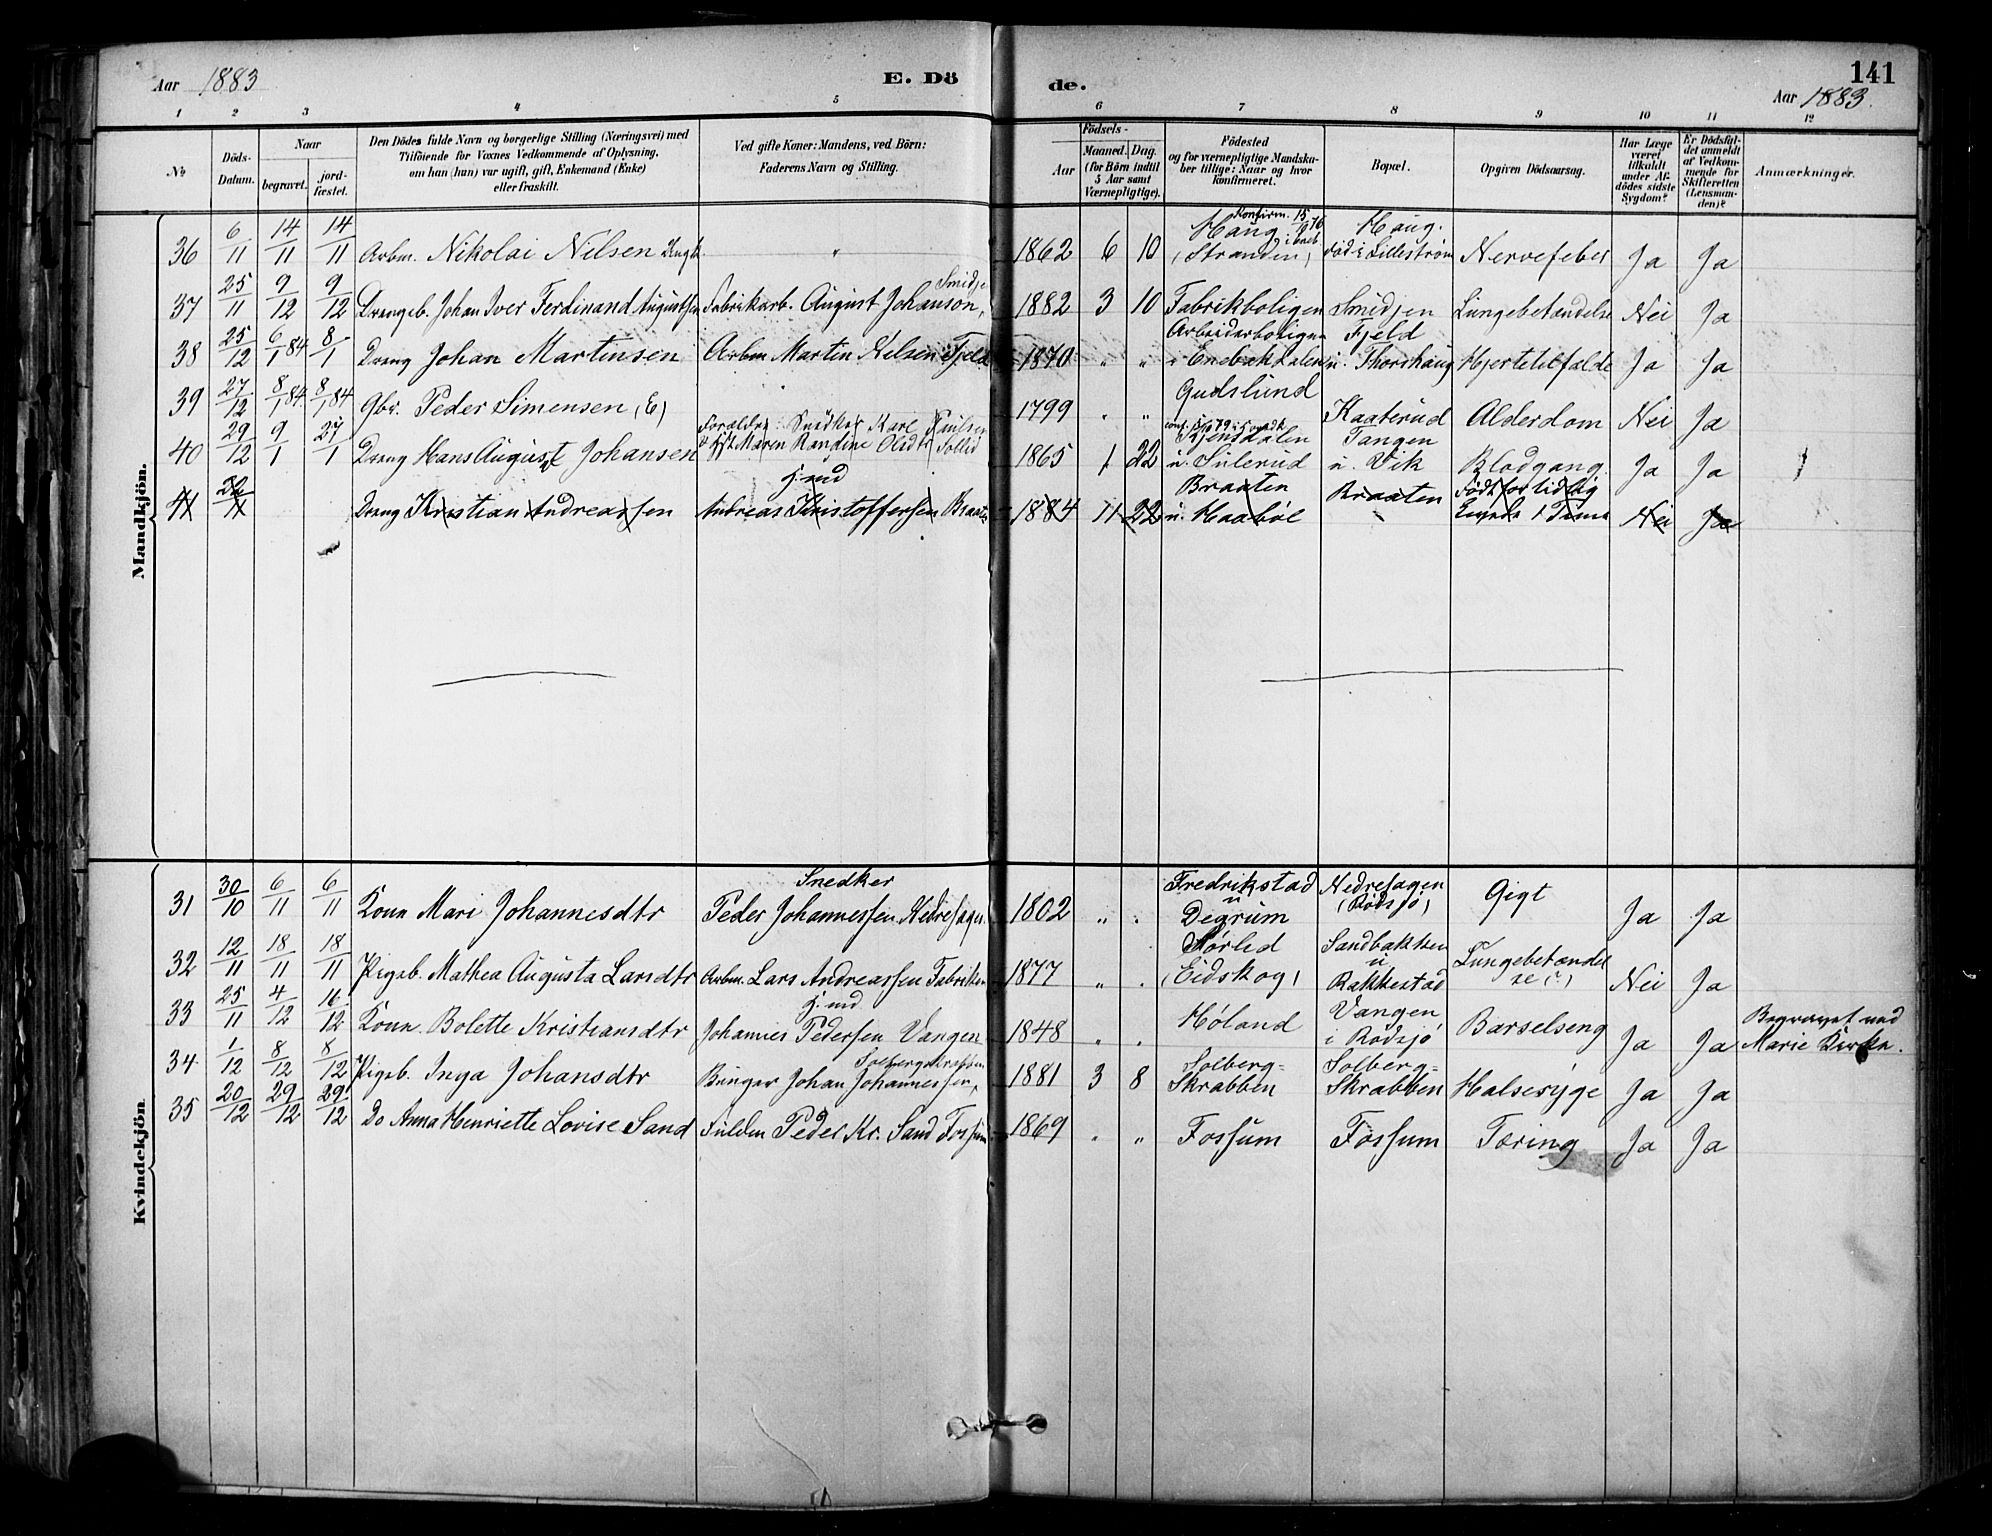 Aar 1883
E. Dö
de.
141
Aar 1883.
1 2 3 4 5 6 7 8 9 10 11 12
No
Döds-Datum.
Naar
begravet.
jord-fæstet.
Den Dödes fulde Navn og borgerlige Stilling (Næringsvei) med
Tilföiende for Voxnes Vedkommende af Oplysning,
om han (hun) var ugift, gift, Enkemand (Enke)
eller fraskilt.
Ved gifte Koner: Mandens, ved Börn:
Faderens Navn og Stilling.
Födsels-
Aar
Maaned.
Dag.
(for Börn indtil
5 Aar samt
Værnepligtige).
Födested
og for værnepligtige Mandska-
ber tillige: Naar og hvor
konfirmeret.
Bopæl.
Opgiven Dödsaarsag.
Har Læge
været
tilkaldt
under Af-
dödes sidste
Sygdom?
Er Dödsfal-
det anmeldt
af Vedkom-
mende for
Skifteretten
(Lensman-
den)?
Anmærkninger.
Mandkjön.
36 6/11 14/11 14/11 Arbm. Nikolai Nilsen Ungk. " 1862 6 10 Konfirm. 15/10 76 Haug (Stranden) Haug. död i Lillestrøm Nervefeber Ja Ja
37 25/11 9/12 9/12 Drengeb. Johan Iver Ferdinand Augustsen Fabrikarb. August Johanson, Smidje 1882 3 10 Fabrikboligen Smidjen Lungebetændelse Nei Ja
38 25/12 6/1 84 8/1 Dreng Johan Martinsen Arbm Martin Nilsen Fjeld 1870 " " Arbeiderboligen i Enebakdalen Fjeld u. Thorshaug Hjertetilfælde Ja Ja
39 27/12 8/1 84. 8/1 84 Gbr. Peder Simensen (E) 1799 " " Gudslund Kaaterud Alderdom Nei Ja
40 29/12 9/1 27/1 Dreng Hans August Johansen Forældre: Snedker Karl & Maren Randine Olsdtr 1865 1 22 u. Sulerud Tangen u. Vik Blodgang. Ja Ja
41 22/11 Dreng Kristian Andreassen Gmd Andreas Kristoffersen Braaten 1884 11 22 Braaten u. Haabøl Braaten Født for tidlig Levede 1 Time Nei Ja
Kvindekjön
31 30/10 6/11 6/11 Kone Mari Johannesdtr Snedker Peder Johannessen Nedresagen 1802 " " Fredrikstad u Degrum Nedresagen (Rødsjø) Gigt Ja Ja
32 12/11 18/11 18/11 Pigeb. Mathea Augusta Larsdtr Arbm. Lars Andreassen Fabriken 1877 " " Nørlid (Eidskog) Sandbakken u Rakkestad Lungebetændelse (?) Nei Ja
33 25/11 4/12 16/12 Kone. Bolette Kristiansdtr Gmd Johannes Pedersen Vangen 1848 " " Høland Vangen i Rødsjø Barselseng Ja Ja Begravet ved Marie Kirke.
34 1/12 8/12 8/12 Pigeb. Inga Johansdtr Solbergskrabben Bunger Johan Johannessen, 1881 3 8 Solberg= Skrabben Solberg= Skrabben Halsesyge Ja Ja
35 20/12 29/12 29/12 Do Anna Henriette Lovise Sand Fulden Peder Kr. Sand Fossum 1869 " " Fossum Fossum Tæring Ja Ja